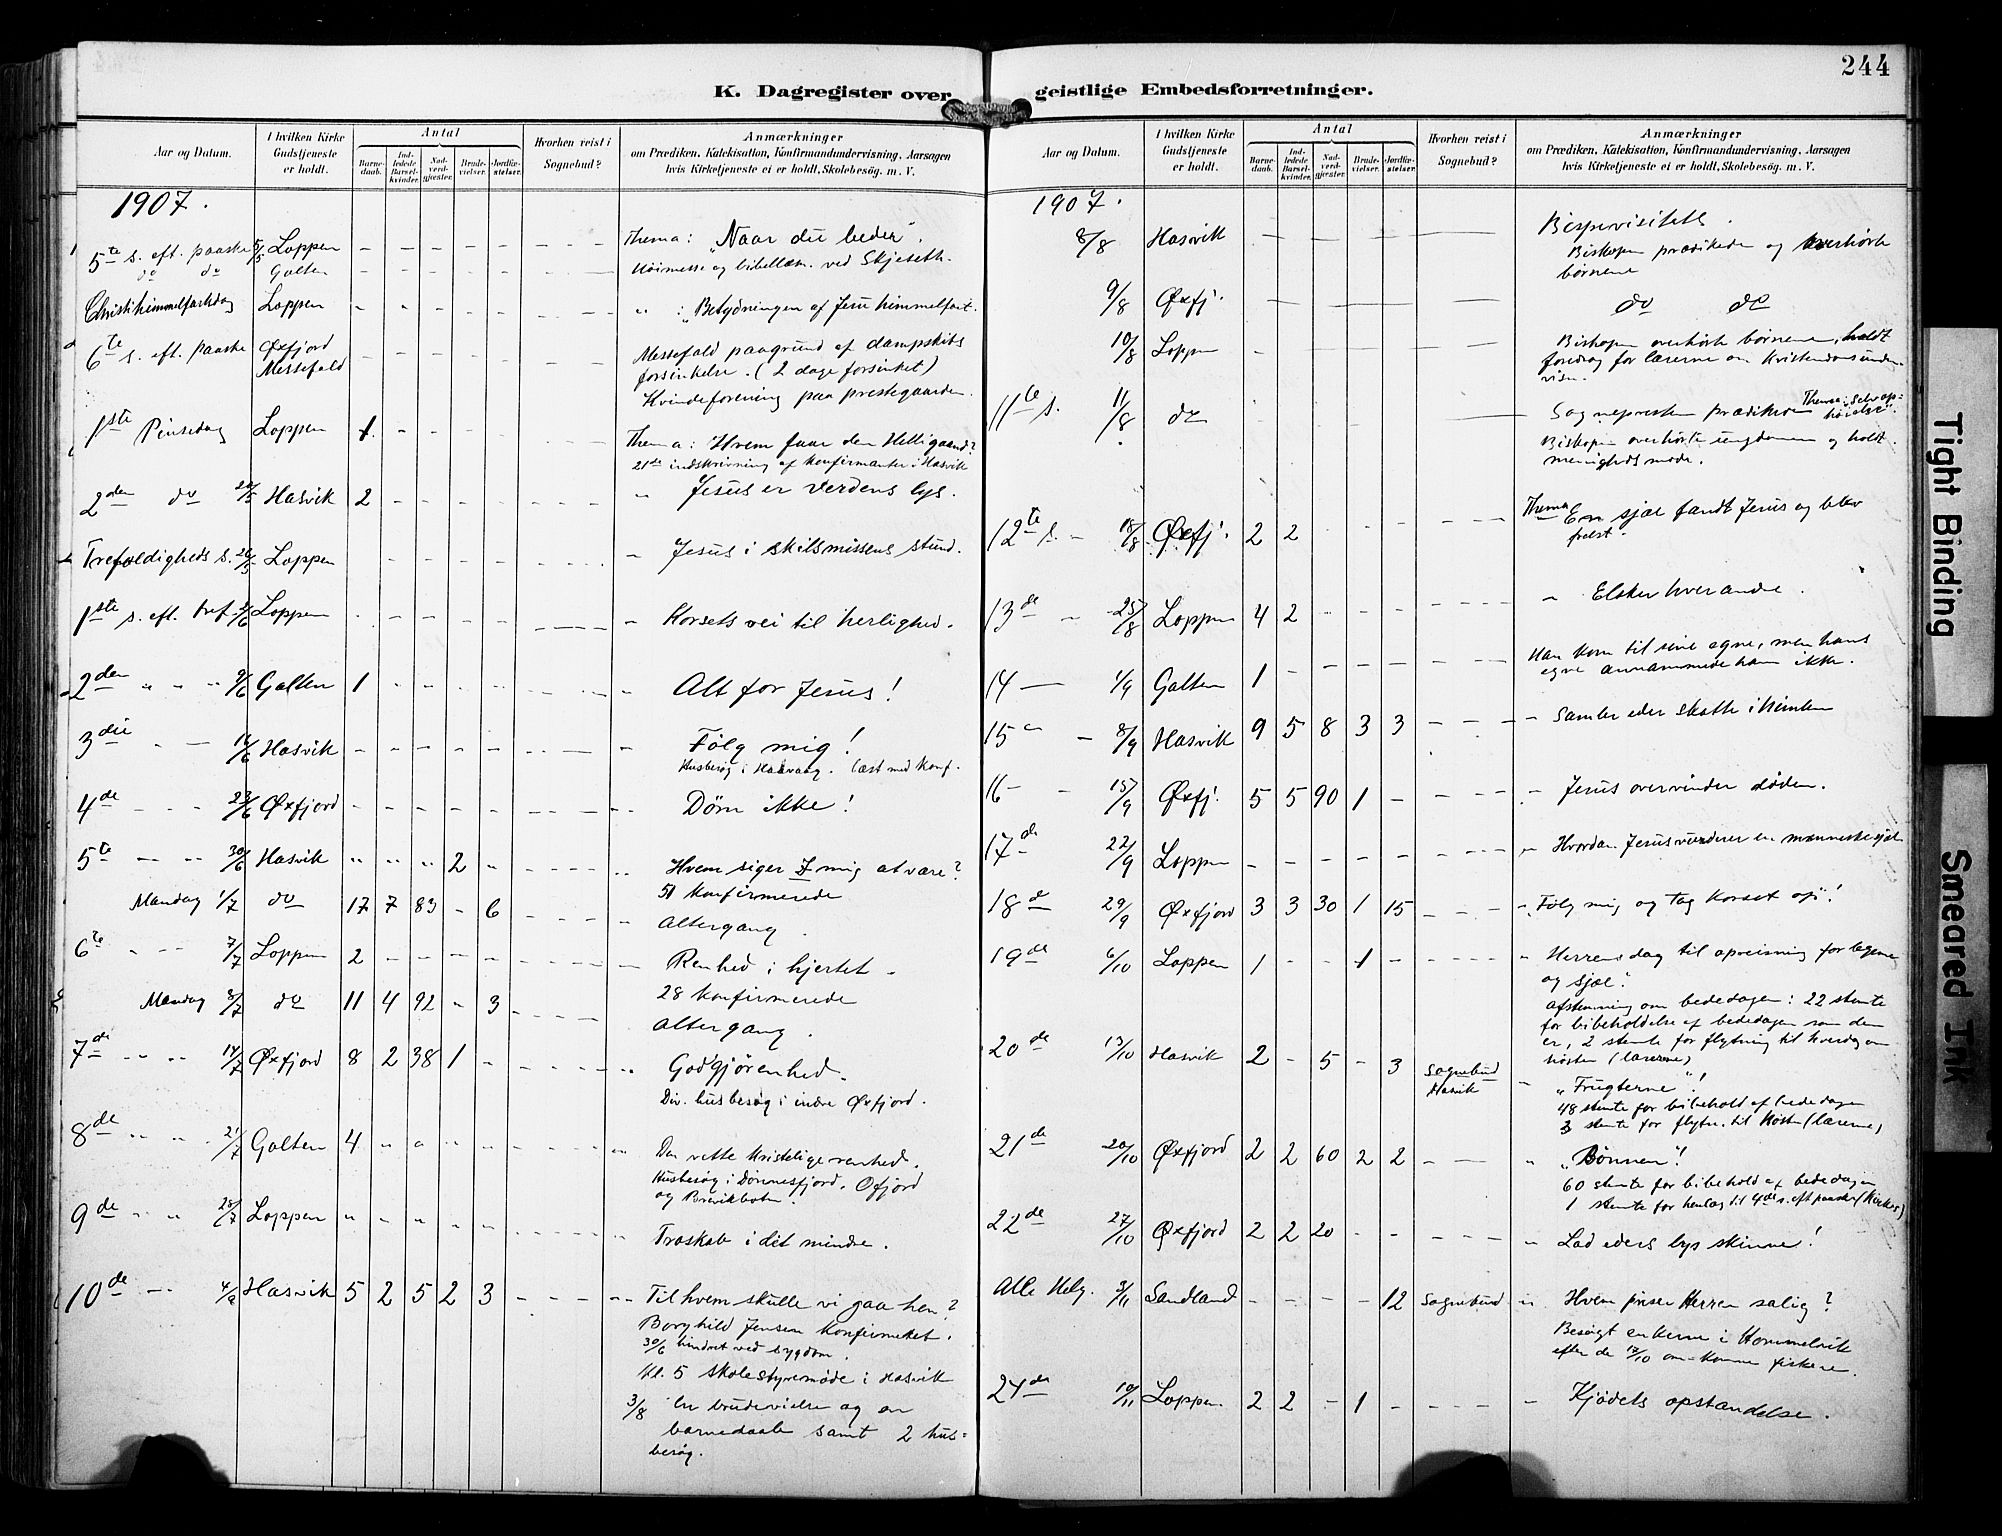 244
K. Dagregister over geistlige Embedsforretninger.
Aar og Datum. | I hvilken Kirke Gudstjeneste er holdt. | Antal | Barnedaab. | Indledede Barselkvinder. | Nadverdgjester. | Brudevielser. | Jordfæstelser. | Hvorhen reist i Sognebud? | Anmærkninger om Prædiken, Katekisation, Konfirmandundervisning, Aarsagen hvis Kirketjeneste ei er holdt, Skolebesøg. m. V.
1907.
5te s. eft. paaske 5/5 Loppen - - - - - - - - Thema: "Naar du beder".
do do Galten - - - - - - - - Høimesse og bibellæsn. ved Skjeseth.
Christi himmelfartsdag Loppen - - - - - - - - " : "Betydningen af Jesu himmelfart.
6te s. eft. paaske Øxfjord - - - - - - - - Messefald paagrund af dampskibs
Messefald forsinkelse. (2 dage forsinket)
Kvindeforening paa prestegaarden.
1ste Pinsedag Loppen 1 - - - - - - - Thema: Hvem faar den Helligaand?
21de indskrivning af konfirmanter i Hasvik
2den do 20/5 Hasvik 2 - - - - - - - " Jesus er verdens lys.
Trefoldigheds s. 26/5 Loppen - - - - - - - " Jesus i skilsmissens stund.
1ste s. eft. tref. 2/6 Loppen - - - - - - - - Korsets vei til herlighed.
2den " " " 9/6 Galten 1 - - - - - - - Alt for Jesus!
3die " - 16/6 Hasvik - - - - - - - - Følg mig!
Husbesøg i Haavaag. læst med konf.
4de - - - 23/6 Øxfjord - - - - - - - - Døm ikke!
5te - - " 30/6 Hasvik " " " 2 " - - - " Hvem siger I mig at være?
51 konfirmerede
Mandag 1/7 do 17 7 83 - 6 - - - - Altergang.
6te - - " 7/7 Loppen 2 - - - - - - - Renhed i hjertet.
28 konfirmerede
Mandag 8/7 do 11 4 92 - 3 - - - - Altergang.
7de " " " 14/7 Øxfjord 8 2 38 1 - - - - " Godgjørenhed.
Div. husbesøg i indre Øxfjord.
8de " " " 21/7 Galten 4 " " " " - - - " Den rette kristelige renhed.
Husbesøg i Dønnesfjord, Ofjord
og Brevikbotn.
9de " " " 28/7 Loppen " - " " - - - - - Troskab i det mindre.
10de - " 4/8 Hasvik 5 2 5 2 3 - - - " Til hvem skulle vi gaa hen?
Borghild Jensen konfirmeret.
30/6 hindret ved sygdom.
Kl. 5 skolestyremøde i Hasvik
3/8 En brudevielse og en
barnedaab samt 2 hus-
besøg.
1907.
8/8 Hasvik - - - - Bispevisitats.
Biskopen prædikede og overhørte
børnene
9/8 Øxfj. - - - - do do
10/8 Loppen - - - - Biskopen overhørte børnene, holdt
foredrag for lærerne om Kristendomsunder-
visn.
11te s. 11/8 do - - - - Sognepresten prædikede Thema: "Selvop-
høielse".
Biskopen overhørte ungdommen og holdt
menighedsmøde.
12te s. - 18/8 Øxfj. 2 2 - - - - - - Thema En sjæl fandt Jesus og blev
frelst.
13de - 25/8 Loppen 4 2 - - - - - - " Elsker hverandre.
14 — 1/9 Galten 1 - - - - - - - Han kom til sine egne, men hans
egne annammede ham ikke.
15 " - 8/9 Hasvik 9 5 8 3 3 - - - " Samler eder skatte i himlen
16 - - 15/9 Øxfj. 5 5 90 1 - - - - " Jesus overvinder døden.
17de 22/9 Loppen - - - - - - - - " Hvordan Jesus vurderer en menneskesjæl
18de 29/9 Øxfjord 3 3 30 1 15 - - - " Følg mig og tag korset op!
19de 6/10 Loppen 1 - - 1 - - - - " Herrens dag til opreisning for legeme
og sjæl".
Afstemning om bededagen: 22 stemte
for bibeholdelse af bededagen som den
er, 2 stemte for flytning til hverdag om
høsten (lærerne)
20de 13/10 Hasvik 2 - 5 - 3 Sognebud Hasvik - "Frugterne"!
48 stemte for bibehold af bededagen
3 stemte for flytn. til Høsten (lærerne)
21de 20/10 Øxfjord 2 2 60 2 2 - - - " "Bønnen"!
60 stemte for bibehold af bededagen
1 stemte for henlæg til 4de s. eft paaske (Kirkes.)
22de 27/10 Øxfjord 2 2 20 - - - - - " Lad eders lys skinne!
Alle Helg. 3/11 Sandland - - - - 12 Sognebud " Hvem priser Herren salig?
Besøgt enkerne i Hommelvik
efter de 17/10 om-komne fiskere.
24de 10/11 Loppen. 2 2 - 1 - - - - " Kjødets opstandelse.
Tight Binding
Smeared Ink